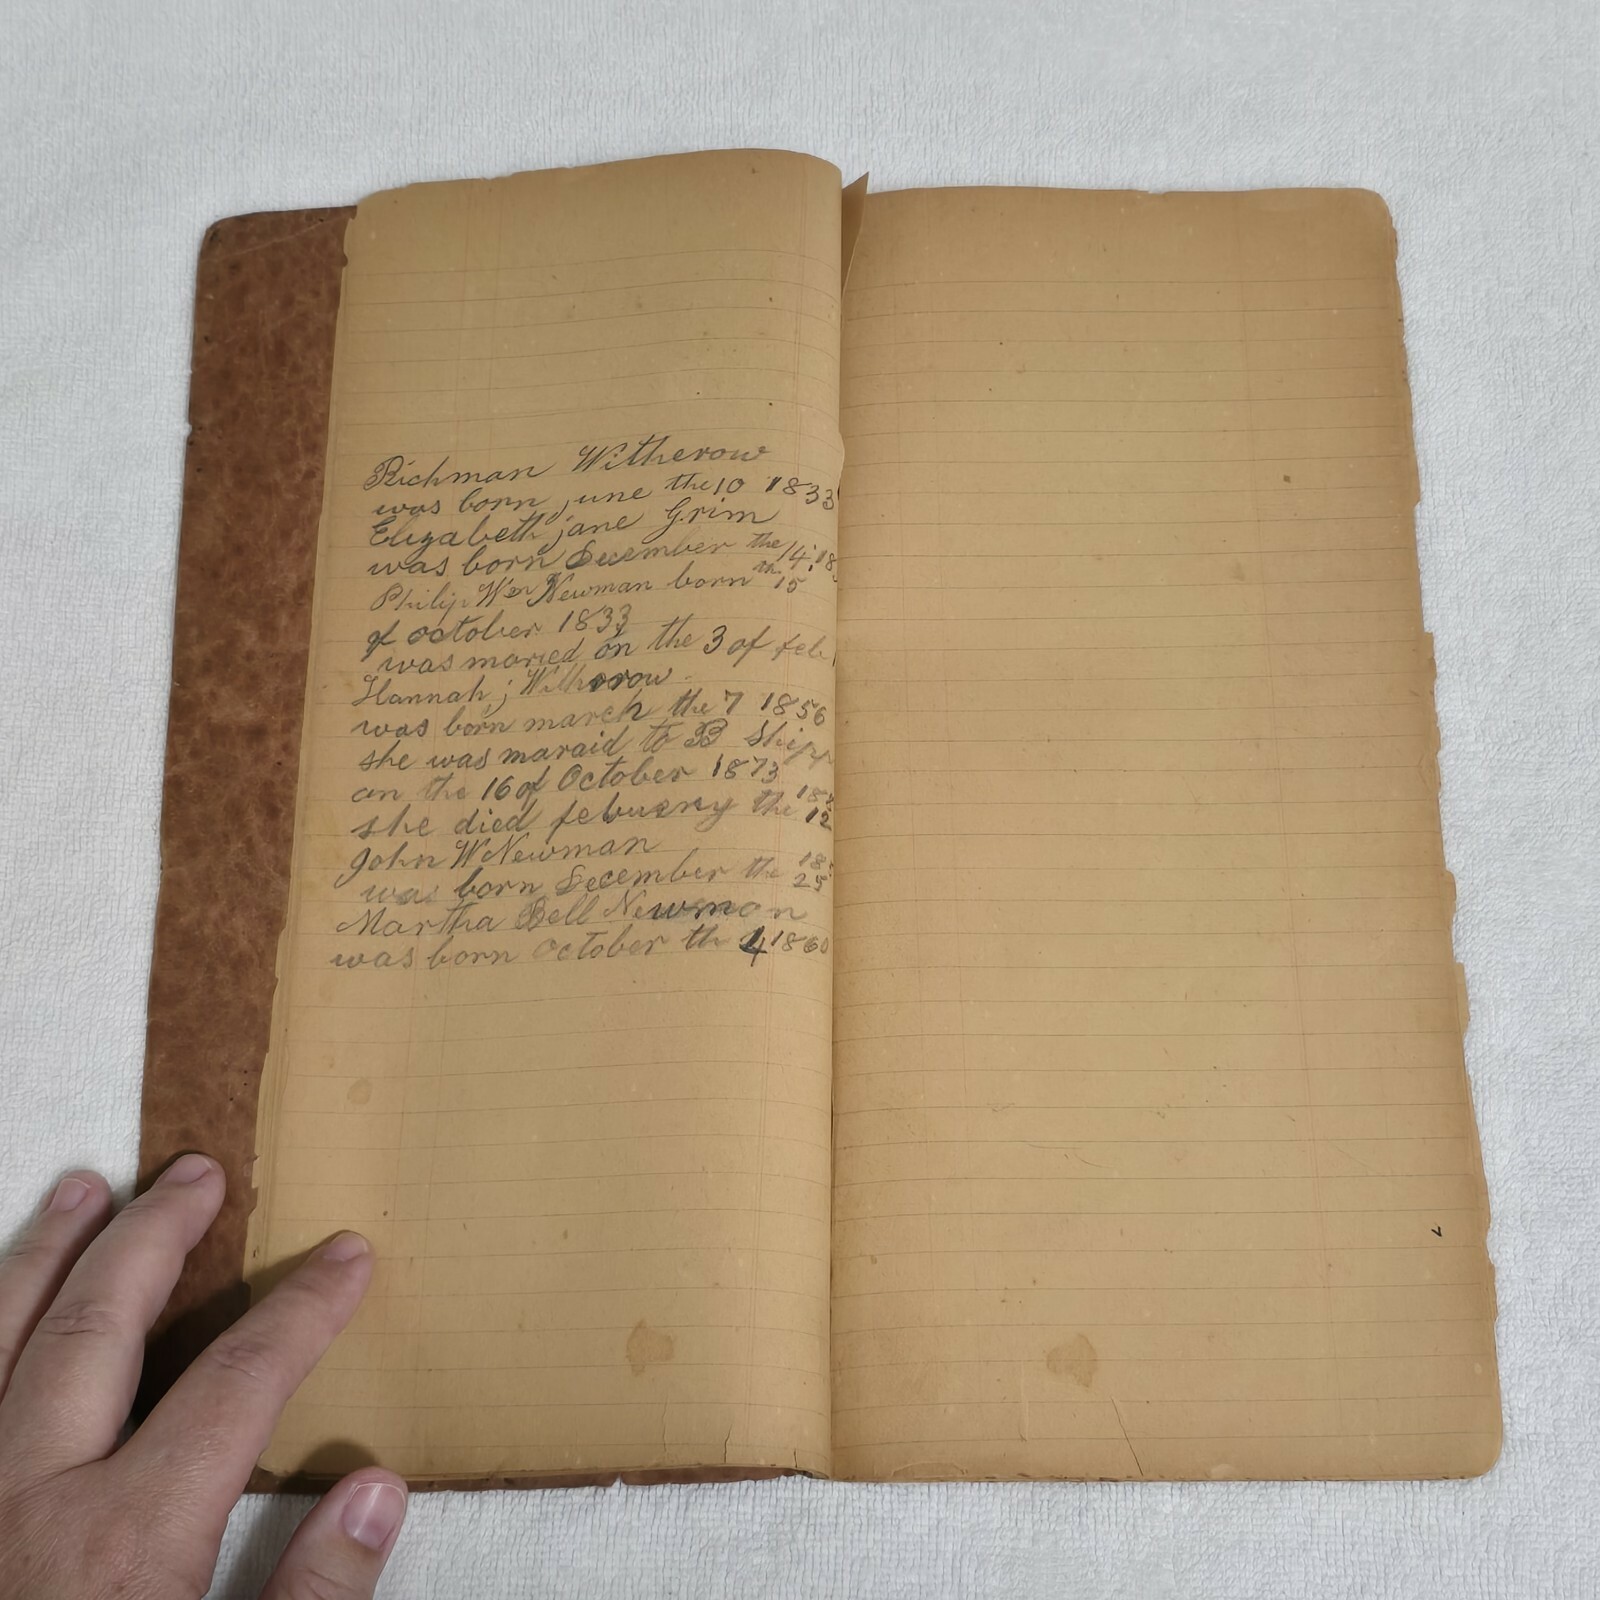 Richman Witherow
was born june the 10 1833
Elizabeth jane Grim
was born December the 14, 18
Philip Wm Newman born th 15
of october 1833
was maried on the 3 of feb
Hannah j Witherow
was born march the 7 1856
she was maraid to B Shipp
on the 16 of October 1873
she died febuery the 12 18
John W Newman
was born December the 25 18
Martha Bell Newman
was born October th 4 1860